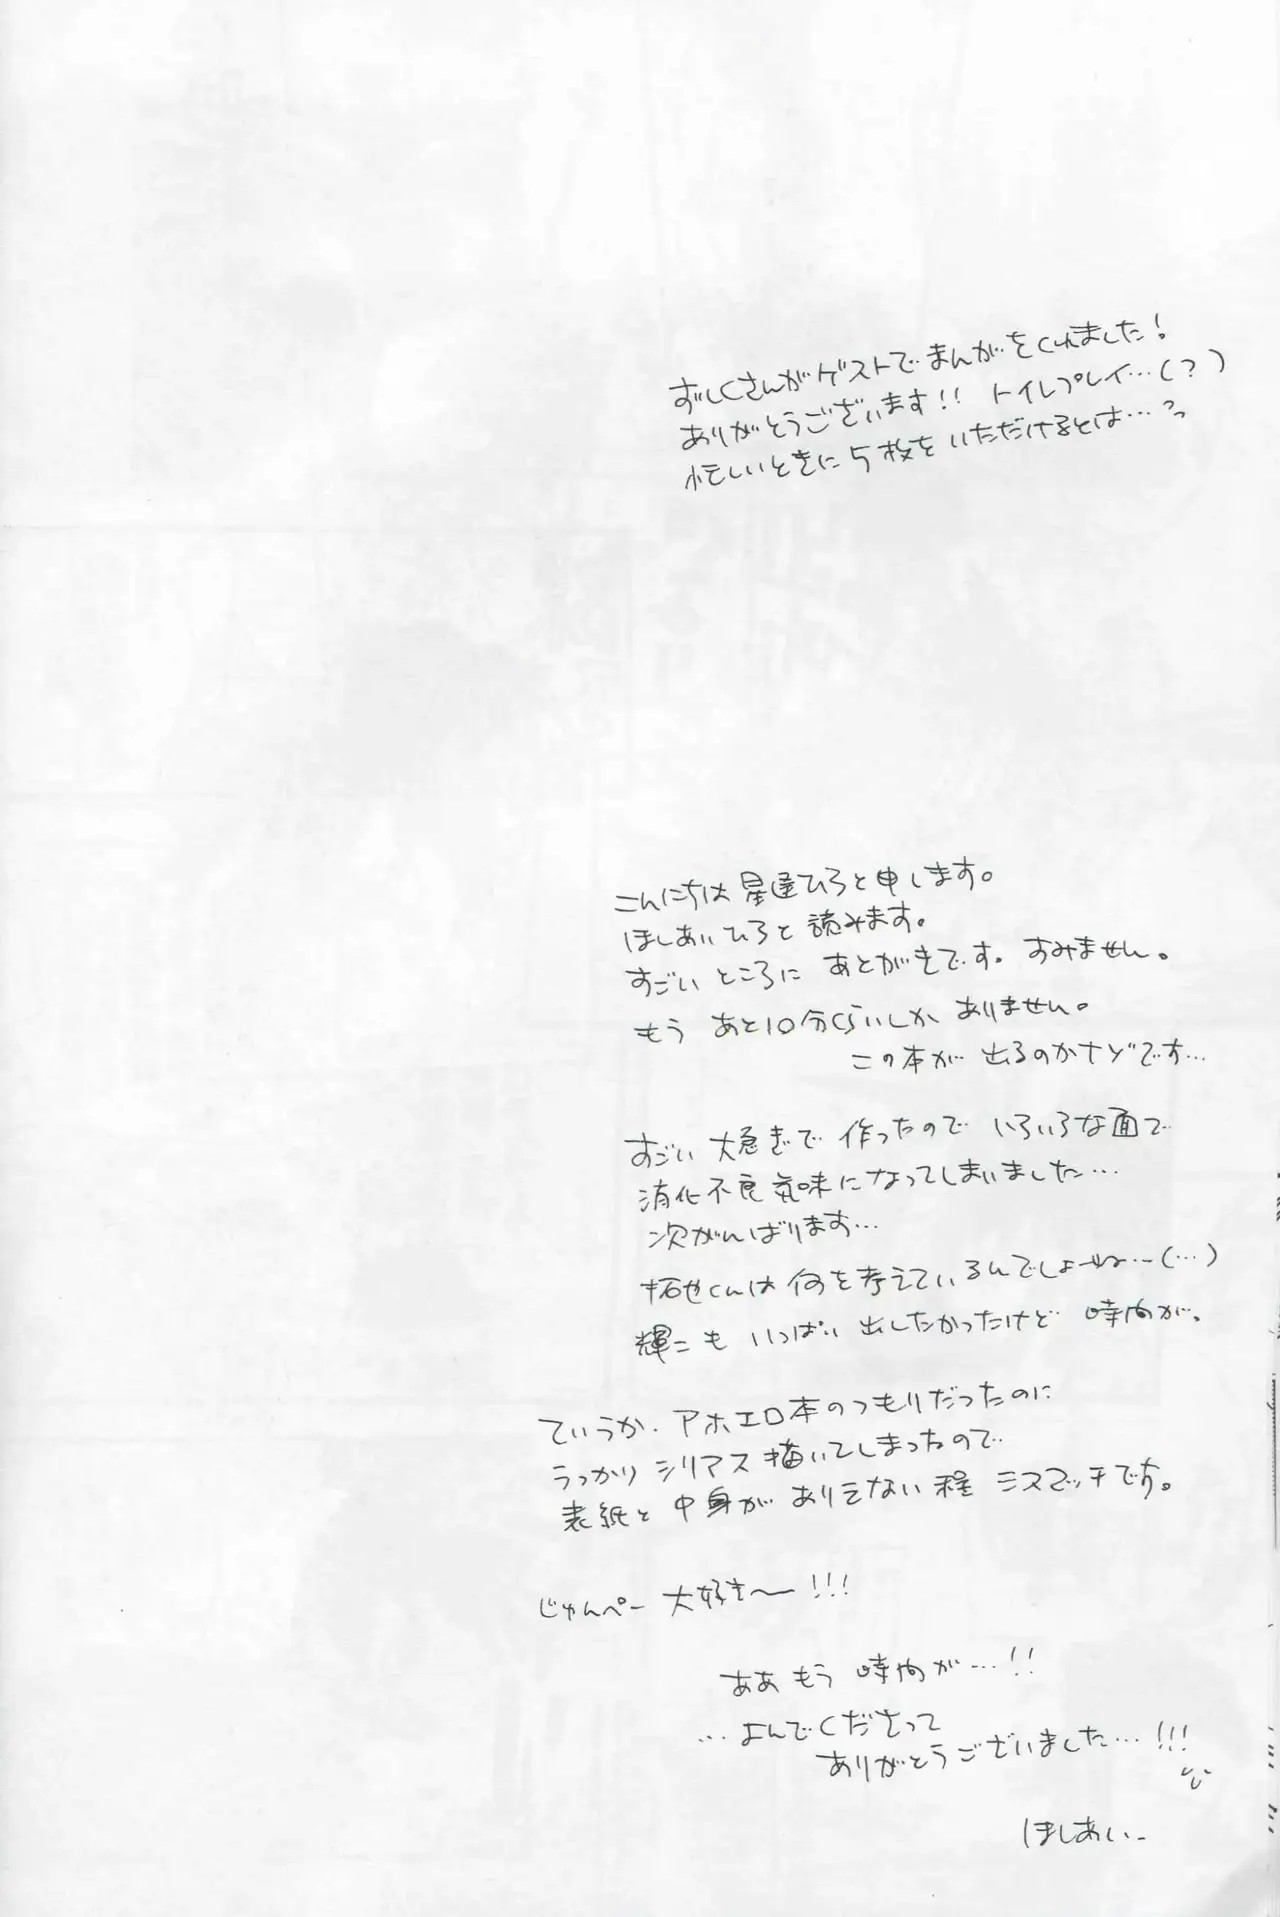 ずしくさんがゲストでまんがをくれました!
ありがとうございます!! トイレプレイ…(?)
忙しいときに5枚をいただけるとは…?っ
こんにちは星逢ひろと申します。
ほしあいひろと読みます。
すごいところにあとがきです。すみません。
もう あと10分くらいしかありません。
この本が出るのかナゾです…
すごい大急ぎで作ったのでいろいろな面で
消化不良気味になってしまいました…
次がんばります…
拓也くんは何を考えているんでしょーね…(…)
輝二もいっぱい出したかったけど時間が。
ていうか、アホエロ本のつもりだったのに
うっかりシリアス描いてしまったので
表紙と中身がありえない程ミスマッチです。
じゅんぺー大好き〜!!!
ああもう時間が…!!
…よんでくださって
ありがとうございました…!!!
ほしあい